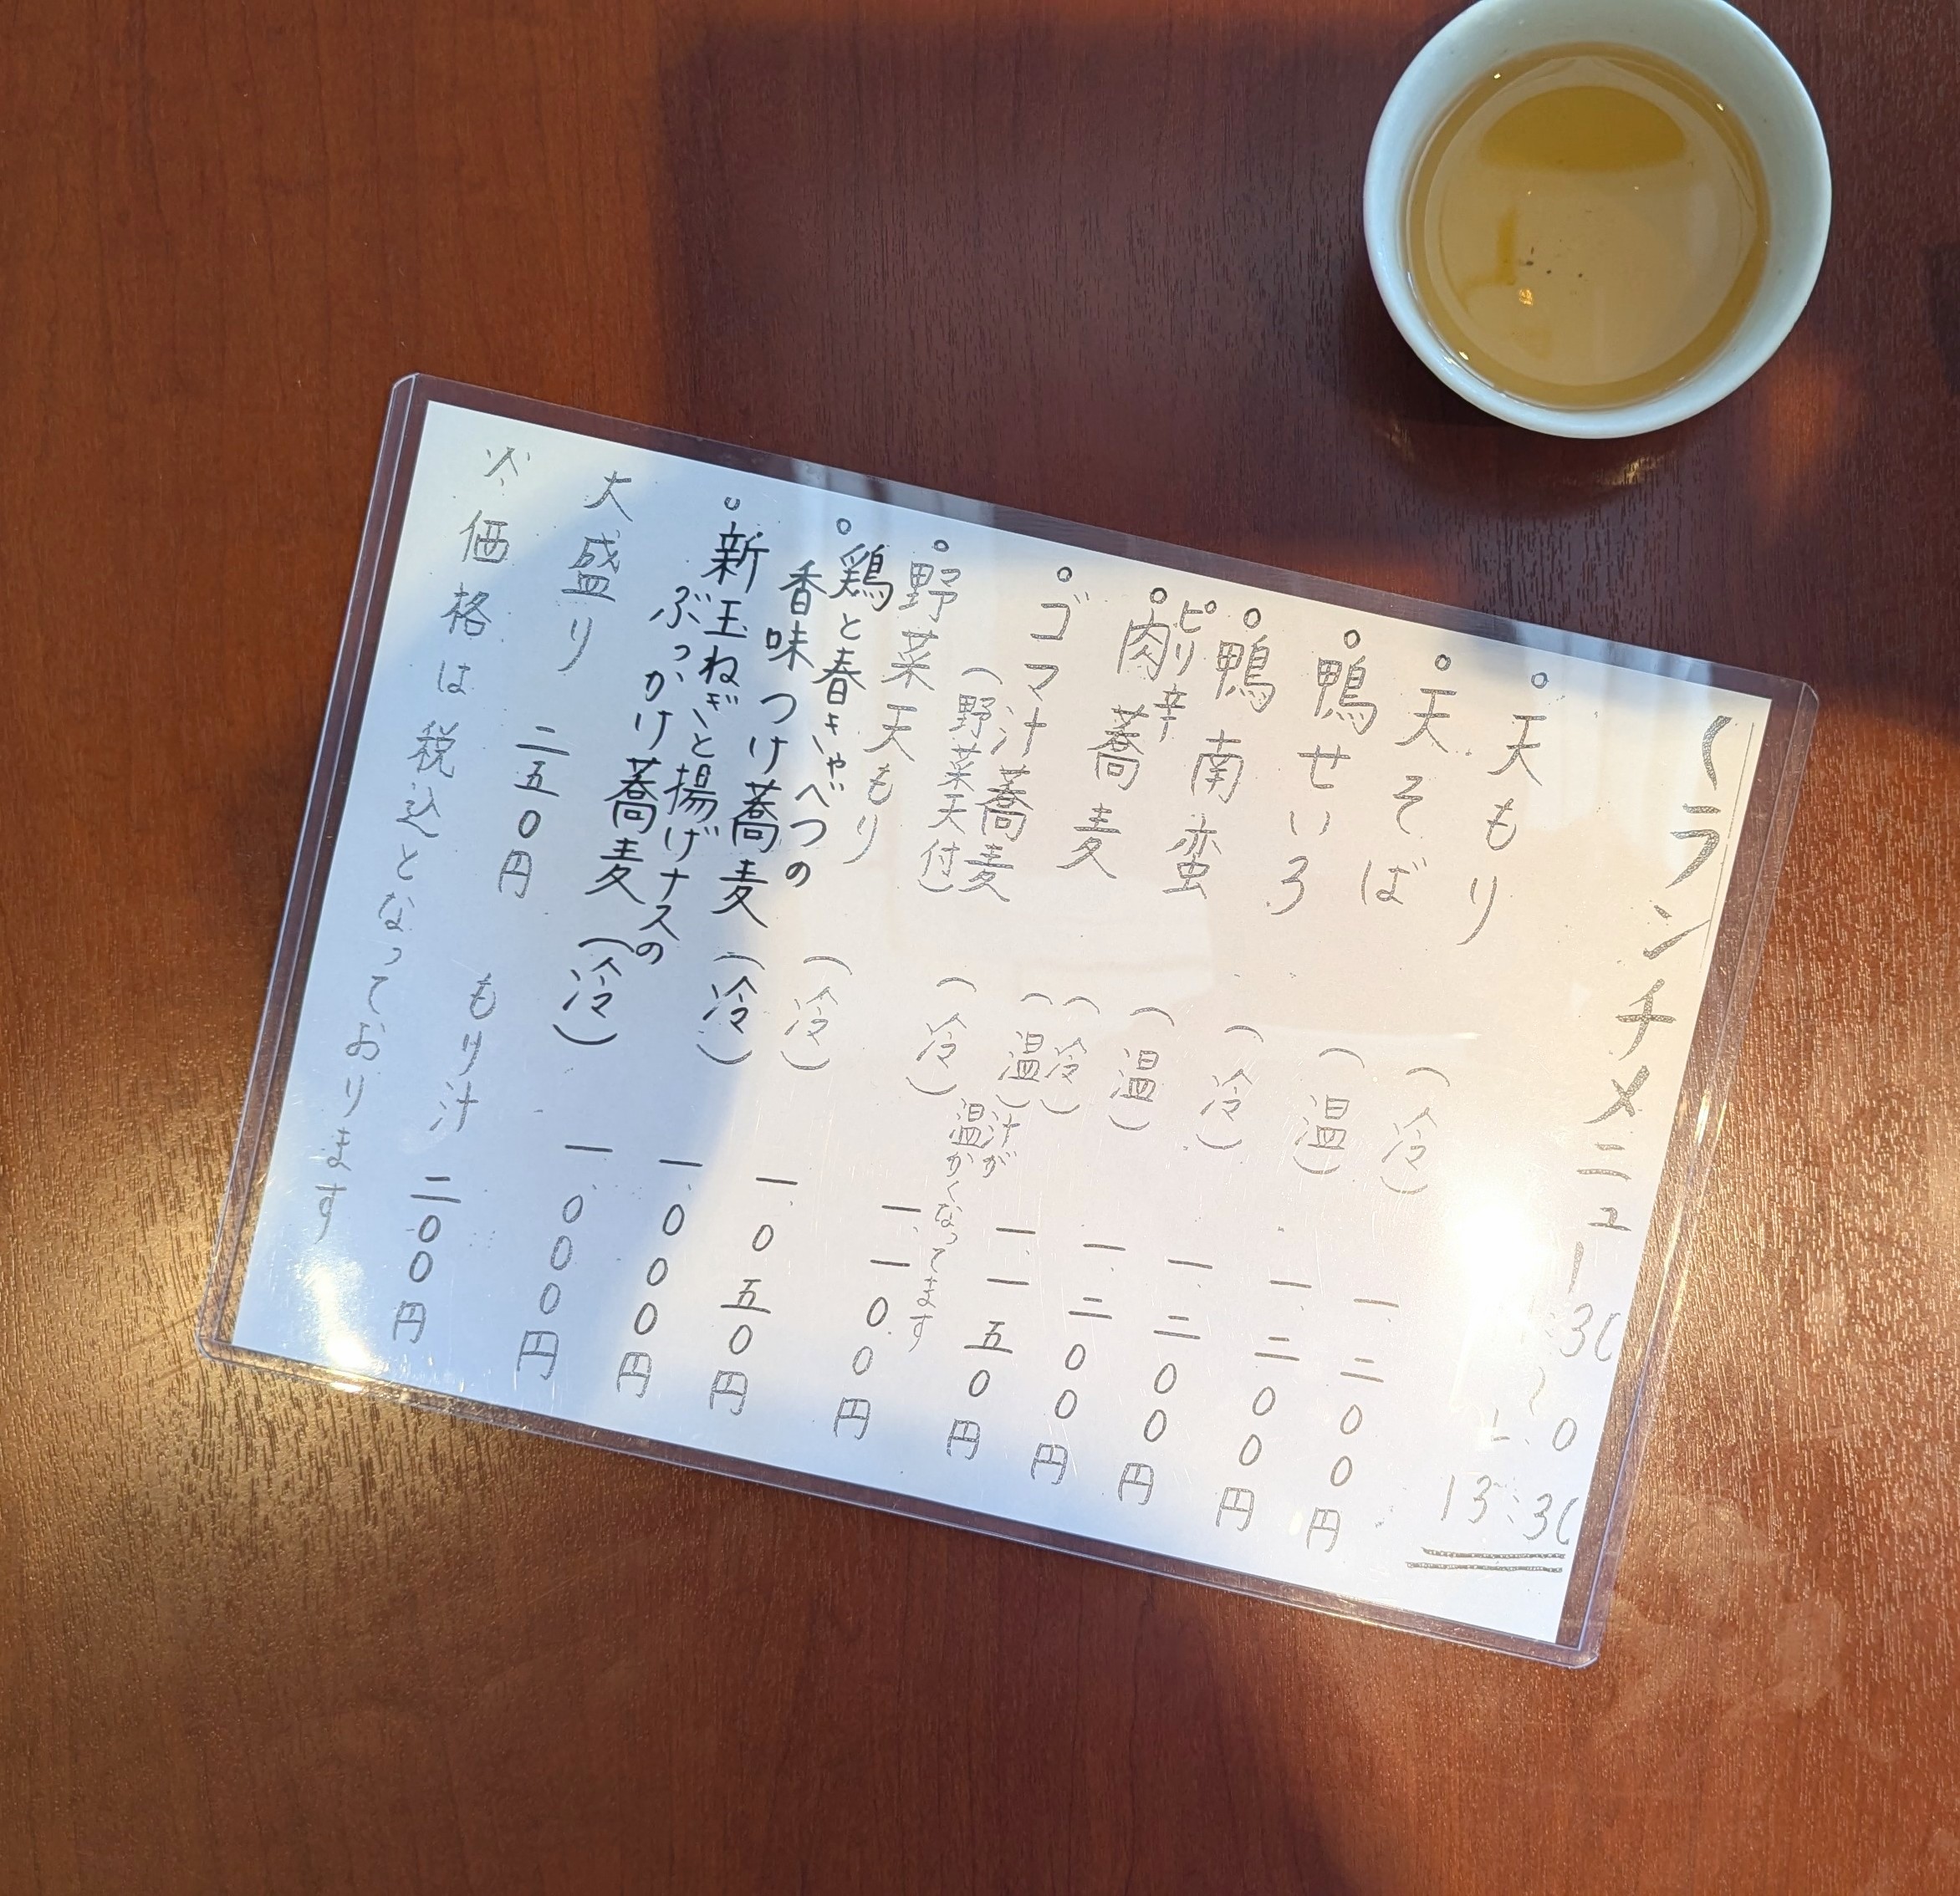 〈ランチメニュー
:30
〜
L.O
13:30
○天もり (冷) 一、二〇〇円
○天そば (温) 一、二〇〇円
○鴨せいろ (冷) 一、二〇〇円
○鴨南蛮 (温) 一、二〇〇円
ピリ辛
○肉蕎麦 (冷) (温) 一、一五〇円
○ゴマ汁蕎麦 (冷) 一、一〇〇円
(野菜天付) 汁が温かくなってます
○野菜天もり (冷) 一、〇五〇円
○鶏と春きゃべつの
香味つけ蕎麦 (冷) 一、〇〇〇円
○新玉ねぎと揚げナスの
ぶっかけ蕎麦 (冷) 一、〇〇〇円
大盛り 二五〇円 もり汁 二〇〇円
※価格は税込となっております